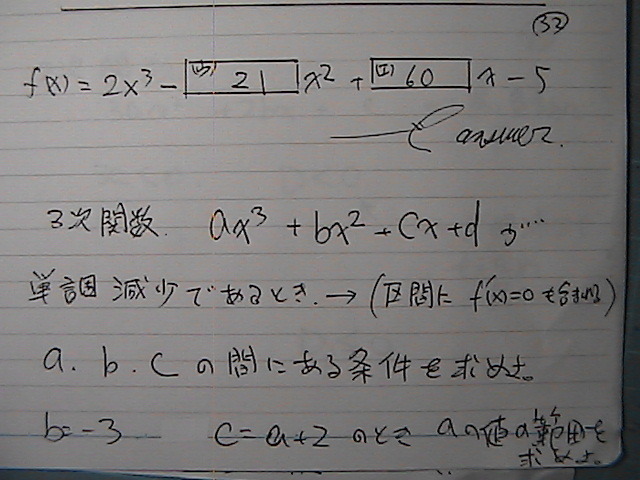 (33)
f(x) = 2x³ - (ウ) 21 x² + (エ) 60 x - 5
answer.
3次関数. ax³ + bx² + cx + d が…
単調減少であるとき. → (区間に f'(x)=0 も含まれる)
a. b. c の間にある条件を求めよ。
b = -3 c = a+2 のとき aの値の範囲を
求めよ。